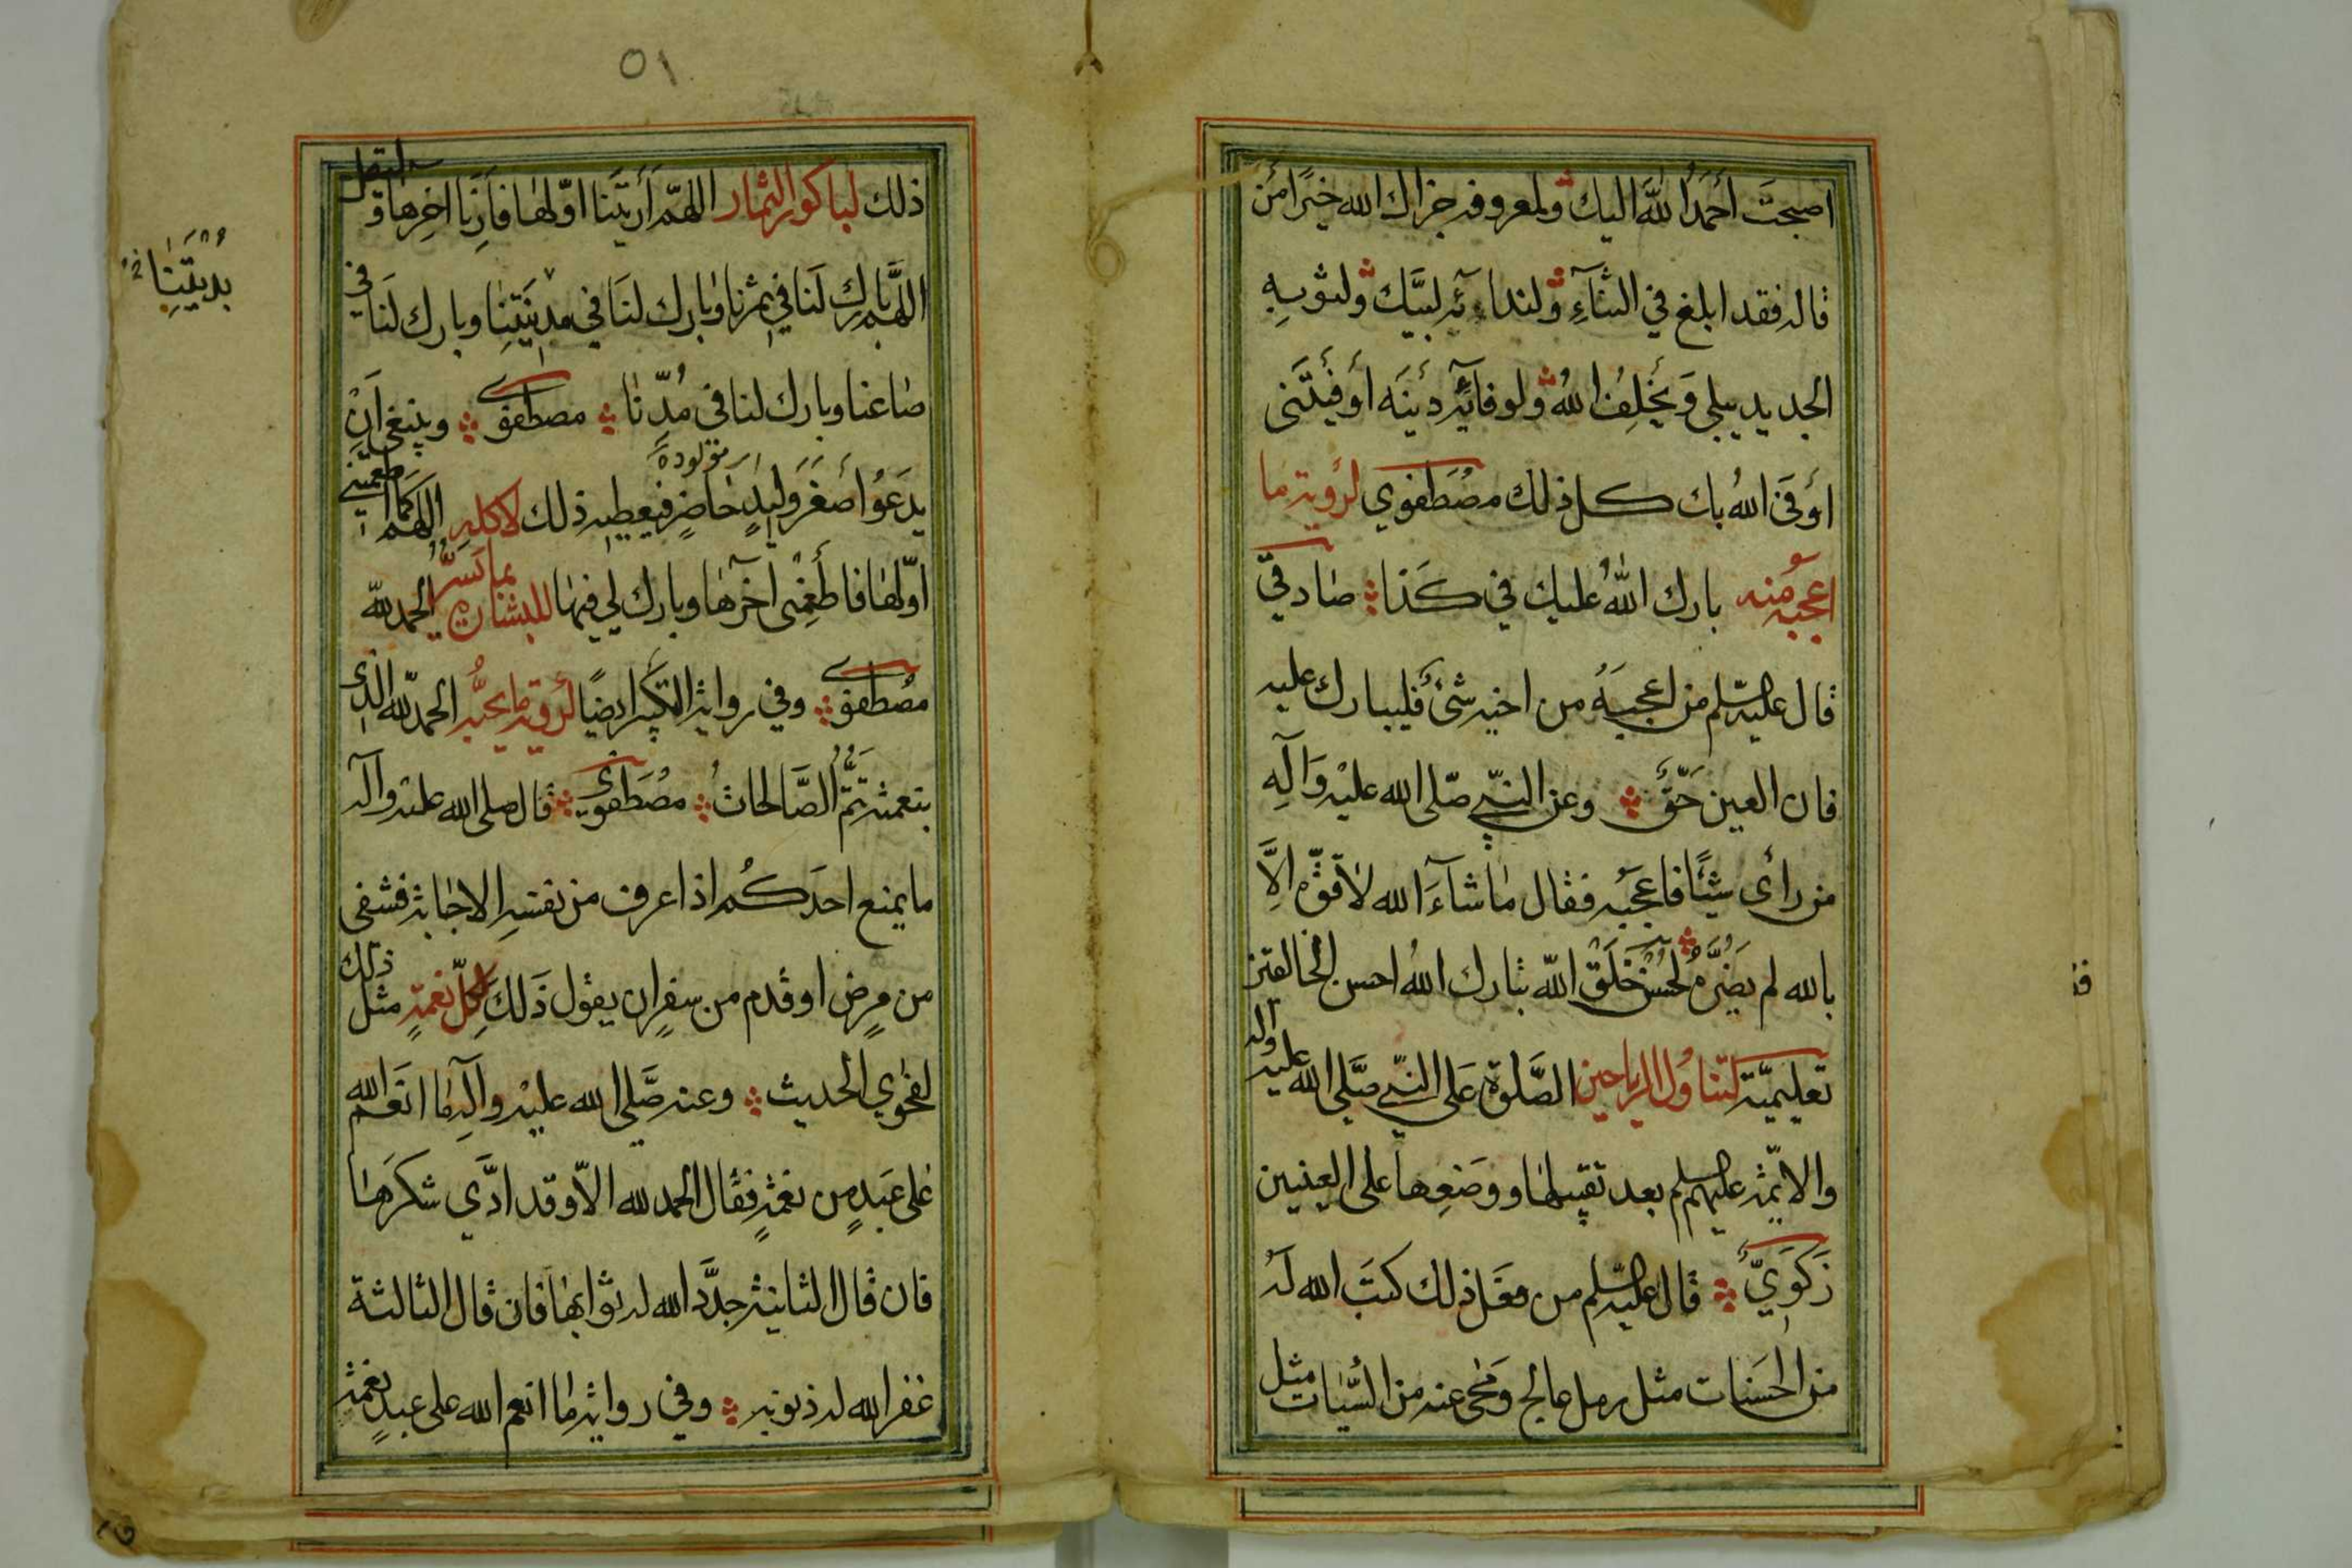 اصبحتَ اَحْمَدُ اللهَ اليك ولمعروفه جزاك الله خيرًا من
قاله فقد ابلغ في الثنآءِ ولندائه لبيّك ولثوبِهِ
الجديد يبلي وَيُخْلِفُ اللهُ ولوفآئه دينَه اَوفَيْتَني
اَوفَى اللهُ بك كل ذلك مُصْطَفوي لرؤية ما
اعجبه منه بارك اللهُ عليك في كَذا صادقيّ
قال عليه السلم من اعجبهُ من اخيه شئ فليبارك عليه
فان العين حَقٌّ وعن النبي صلى الله عليْه وَآلِهِ
من راى شيئًا فاعجبه فقال ما شآءَ الله لا قوّة اِلّا
بالله لم يضُرّهُ لحُسْنِ خَلَقْ الله تبارك اللهُ احسن الخالقين
تعليميّة لتناوُل الرياحين الصَّلوة عَلى النبي صلَّى الله عليه وآله
والائمّة عليهم السلم بعد تقبيلها ووَضعِها على العينين
زَكَوَيٌّ قال عليه السلم من فعَل ذلك كتبَ الله لَهُ
من الحَسَنات مثل رمل عالج وَمَحى عنه من السيّات مثل
٥١
ذلك لباكور الثمار اللهمّ اَرَيتَنا اوّلها فاَرِنا اخِرها وليقل
اللهمّ بارك لَنا في ثمرنا وبارك لنَا في مدينَتِنا وبارك لَنا في
بُدَيَّتِنا خ
صاعنا وبارك لنا في مُدّنا مصطفوي وينبغي اَنْ
يدعُو اَصغَر وَليدٍ حَاضرٍ فيعطيه ذلك لاكله اللهمّ كما اطعمتني
اى مولودة
اوّلها فاَطعِمْني اخرَها وبارك لي فيها للبشارة بما يَسرُّ الحمد للّه
مصطفوي وفي رواية التكبير ايضًا لرؤية ما يحبُّه الحمد للّه الذى
بنعمته تَتمُّ الصَّالحاتُ مُصْطَفوي قال صلى الله عليه وآله
ما يمنع احدَكُم اذا عرف من نفسهِ الاجابة فشفى
من مرضٍ او قدم من سفرٍ ان يقول ذَلكَ لِكلّ نِعمةٍ مثل ذلك
لفحْوي الحديث وعنه صَلّي الله عليْه وآلهِ ما انعَم الله
على عَبدٍ من نعمةٍ فقال الحمد لله الّا وقد ادَّى شكرَها
فان قال الثانية جدَّد الله له ثوابها فان قال الثالثة
غفر الله له ذنوبه وفي رواية ما انعم الله على عبدٍ نعمة